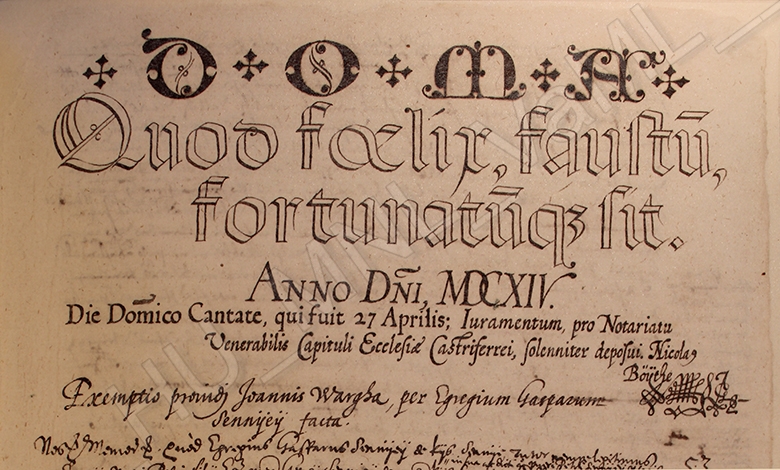 ✣ D ✣ O ✣ M ✣ A ✣
Quod fœlix, faustū,
fortunatūqꝫ sit.
ANNO DÑI, MDCXIV.
Die Domīco Cantate, qui fuit 27 Aprilis; Iuramentum, pro Notariatu
Venerabilis Capituli Ecclesiæ Castriferrei, solenniter deposui. Nicolaꝰ
Böythe
Exemptio providi Joannis Wargha, per Egregium Gasparum
Sennyey facta.
Quod Egregius Gasparus Sennyey de